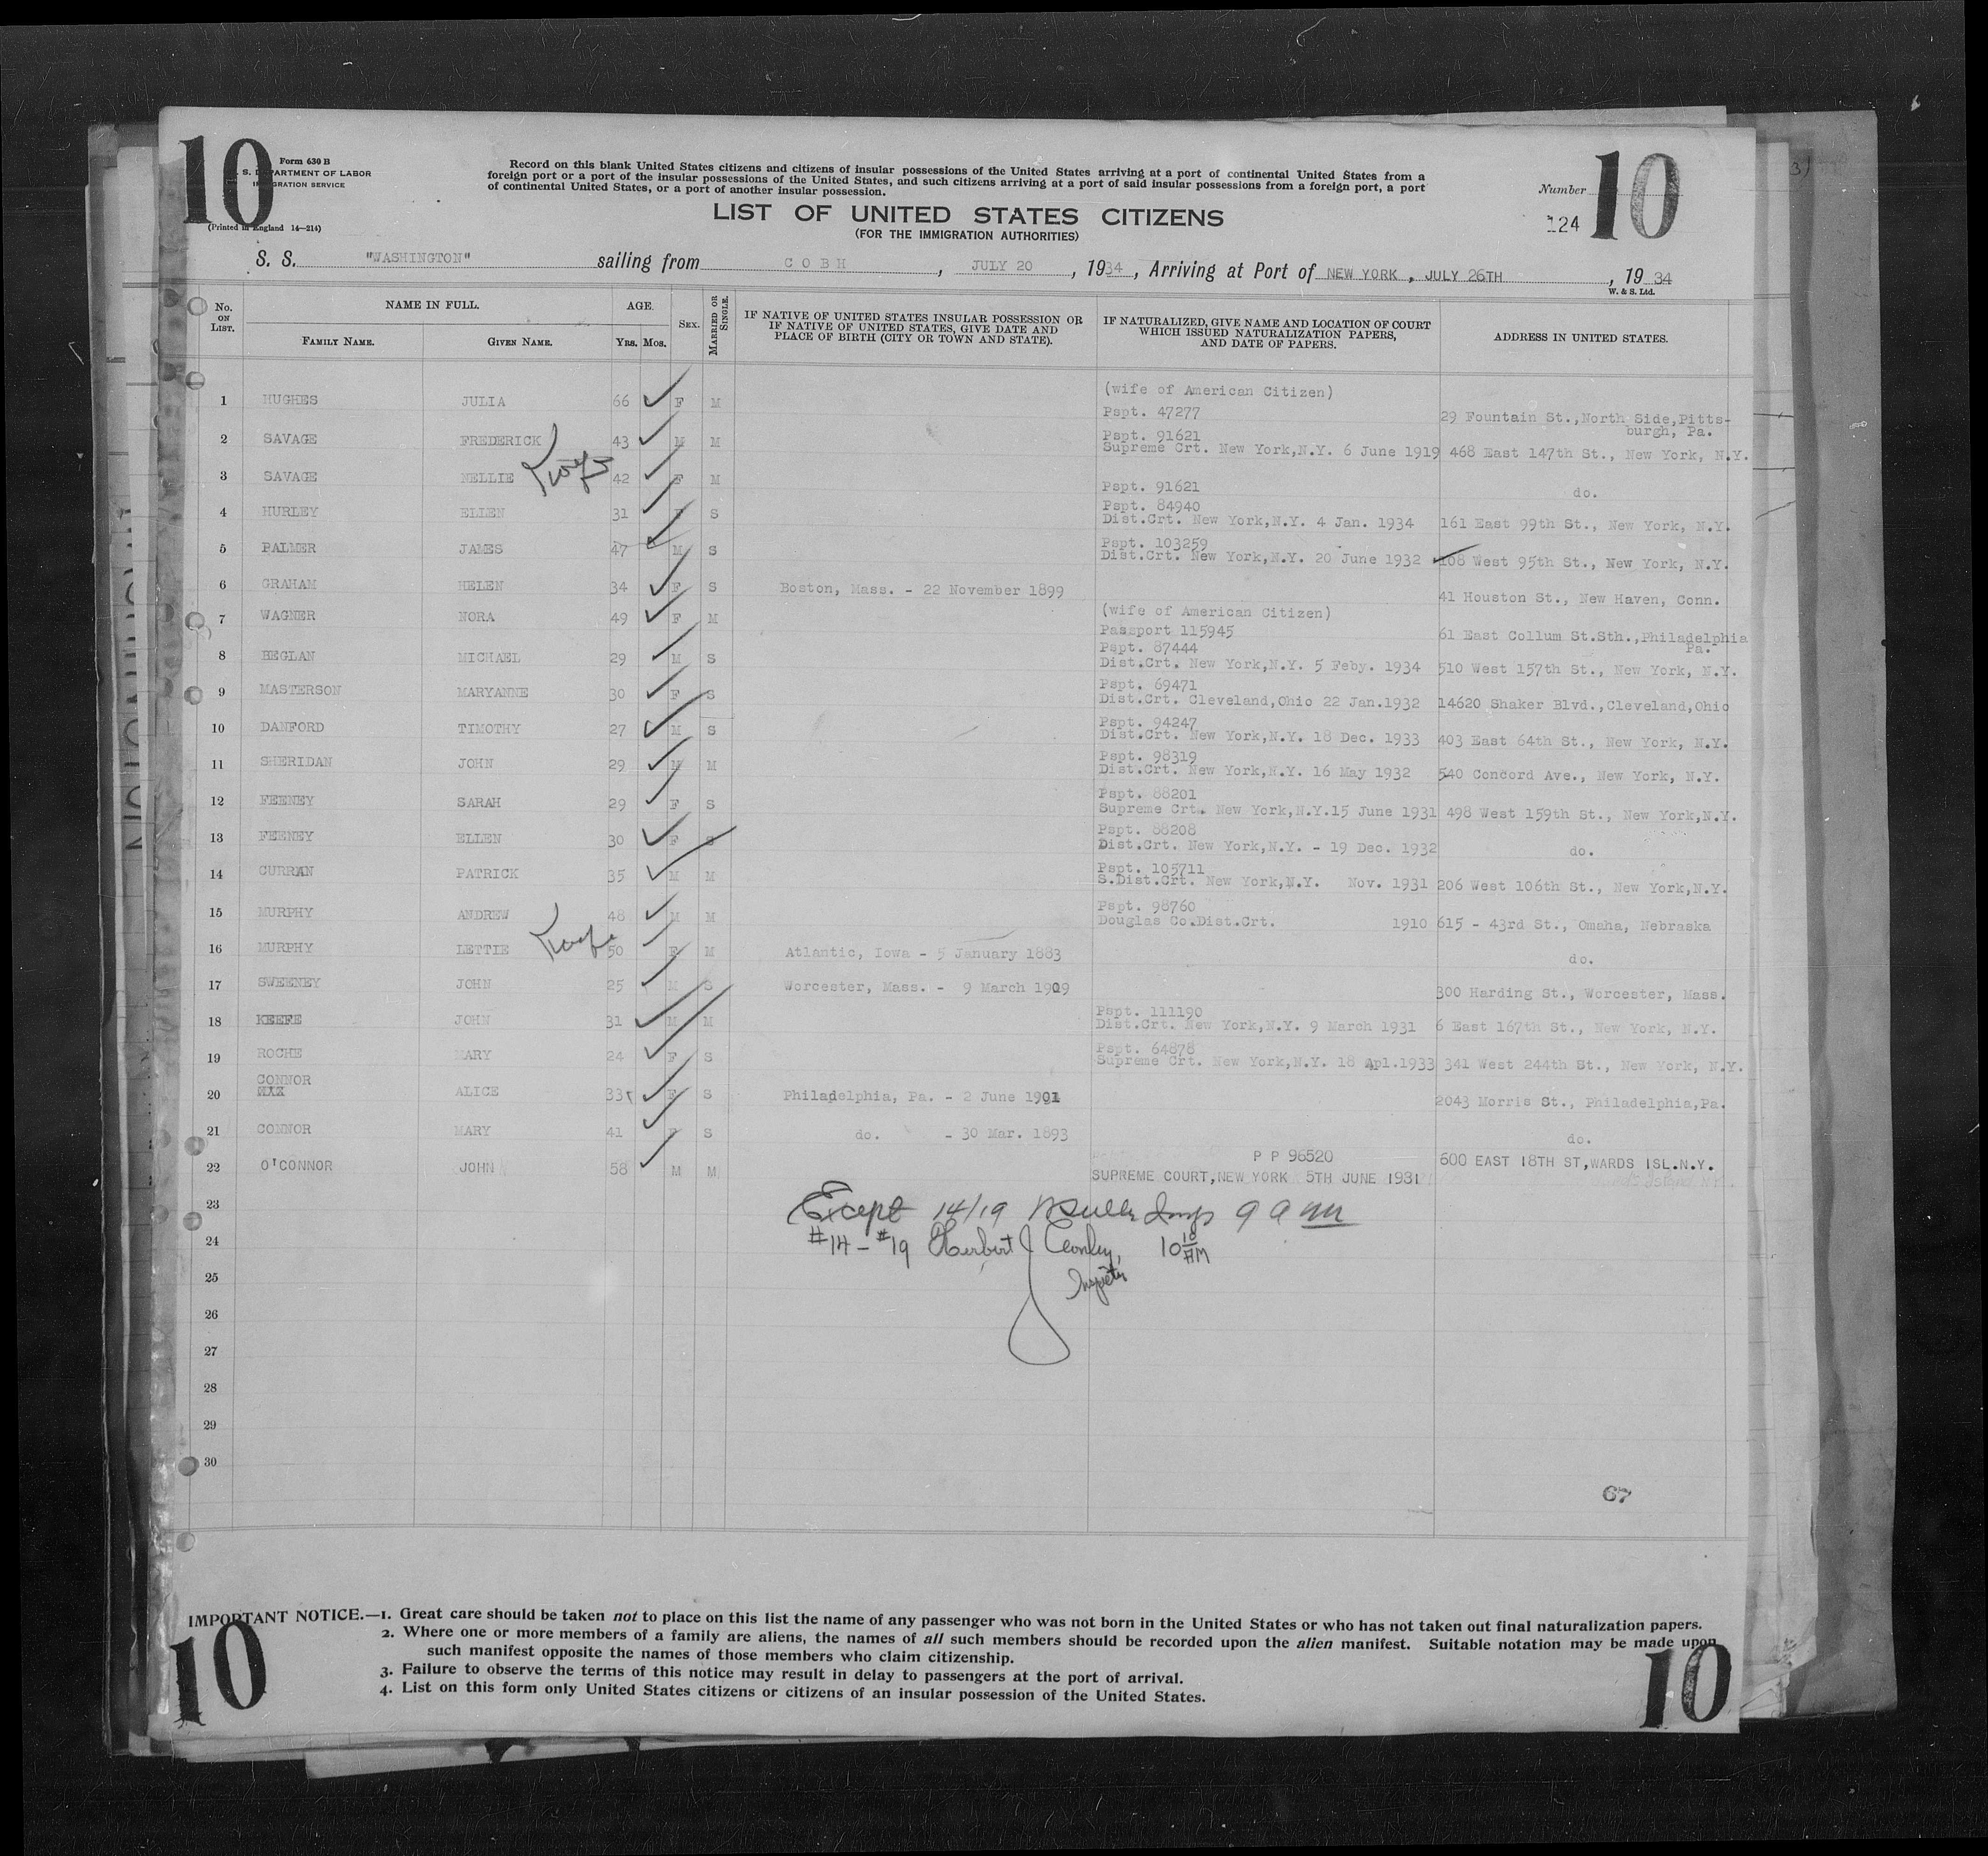 10
10
Form 630 B
S. DEPARTMENT OF LABOR
IMMIGRATION SERVICE
(Printed in England 14—214)
Record on this blank United States citizens and citizens of insular possessions of the United States arriving at a port of continental United States from a
foreign port or a port of the insular possessions of the United States, and such citizens arriving at a port of said insular possessions from a foreign port, a port
of continental United States, or a port of another insular possession.
Number
124
LIST OF UNITED STATES CITIZENS
(FOR THE IMMIGRATION AUTHORITIES)
S. S. "WASHINGTON" sailing from COBH, JULY 20, 1934, Arriving at Port of NEW YORK, JULY 26TH, 19 34
W. & S. Ltd.
No. ON LIST. NAME IN FULL. AGE. SEX. MARRIED OR SINGLE. IF NATIVE OF UNITED STATES INSULAR POSSESSION OR IF NATIVE OF UNITED STATES, GIVE DATE AND PLACE OF BIRTH (CITY OR TOWN AND STATE). IF NATURALIZED, GIVE NAME AND LOCATION OF COURT WHICH ISSUED NATURALIZATION PAPERS, AND DATE OF PAPERS. ADDRESS IN UNITED STATES.
FAMILY NAME. GIVEN NAME. YRS. MOS.
(wife of American Citizen)
1 HUGHES JULIA 66 F M Pspt. 47277 29 Fountain St.,North Side,Pitts-
burgh, Pa.
2 SAVAGE FREDERICK 43 M M Pspt. 91621
Supreme Crt. New York,N.Y. 6 June 1919 468 East 147th St., New York, N.Y.
3 SAVAGE NELLIE 42 F M Pspt. 91621 do.
4 HURLEY ELLEN 31 F S Pspt. 84940
Dist.Crt. New York,N.Y. 4 Jan. 1934 161 East 99th St., New York, N.Y.
5 PALMER JAMES 47 M S Pspt. 103259
Dist.Crt. New York,N.Y. 20 June 1932 108 West 95th St., New York, N.Y.
6 GRAHAM HELEN 34 F S Boston, Mass. - 22 November 1899 41 Houston St., New Haven, Conn.
(wife of American Citizen)
7 WAGNER NORA 49 F M Passport 115945 61 East Collum St.Sth.,Philadelphia
Pa.
8 HEGLAN MICHAEL 29 M S Pspt. 87444
Dist.Crt. New York,N.Y. 5 Feby. 1934 510 West 157th St., New York, N.Y.
9 MASTERSON MARYANNE 30 F S Pspt. 69471
Dist.Crt. Cleveland,Ohio 22 Jan.1932 14620 Shaker Blvd.,Cleveland,Ohio
10 DANFORD TIMOTHY 27 M S Pspt. 94247
Dist.Crt. New York,N.Y. 18 Dec. 1933 403 East 64th St., New York, N.Y.
11 SHERIDAN JOHN 29 M M Pspt. 98319
Dist.Crt. New York,N.Y. 16 May 1932 540 Concord Ave., New York, N.Y.
12 FEENEY SARAH 29 F S Pspt. 88201
Supreme Crt. New York,N.Y.15 June 1931 498 West 159th St., New York,N.Y.
13 FEENEY ELLEN 30 F S Pspt. 88208
Dist.Crt. New York,N.Y. - 19 Dec. 1932 do.
14 CURRAN PATRICK 35 M M Pspt. 105711
S.Dist.Crt. New York,N.Y. Nov. 1931 206 West 106th St., New York,N.Y.
15 MURPHY ANDREW 48 M M Pspt. 98760
Douglas Co.Dist.Crt. 1910 615 - 43rd St., Omaha, Nebraska
16 MURPHY LETTIE 50 F M Atlantic, Iowa - 5 January 1883 do.
17 SWEENEY JOHN 25 M S Worcester, Mass. - 9 March 1909 300 Harding St., Worcester, Mass.
18 KEEFE JOHN 31 M M Pspt. 111190
Dist.Crt. New York,N.Y. 9 March 1931 6 East 167th St., New York, N.Y.
19 ROCHE MARY 24 F S Pspt. 64878
Supreme Crt. New York,N.Y. 18 Apl.1933 341 West 244th St., New York, N.Y.
CONNOR
20 ALICE 33 F S Philadelphia, Pa. - 2 June 1901 2043 Morris St., Philadelphia,Pa.
21 CONNOR MARY 41 F S do. - 30 Mar. 1893 do.
22 O'CONNOR JOHN 58 M M P P 96520 600 EAST 18TH ST,WARDS ISL.N.Y.
SUPREME COURT,NEW YORK 5TH JUNE 1931
23 Except 14/19 9 a m
24 #14 - #19 Herbert J 10 10 AM
25 Inspector
26
27
28
29
30
67
IMPORTANT NOTICE.—1. Great care should be taken not to place on this list the name of any passenger who was not born in the United States or who has not taken out final naturalization papers.
2. Where one or more members of a family are aliens, the names of all such members should be recorded upon the alien manifest. Suitable notation may be made upon
such manifest opposite the names of those members who claim citizenship.
3. Failure to observe the terms of this notice may result in delay to passengers at the port of arrival.
4. List on this form only United States citizens or citizens of an insular possession of the United States.
10
10